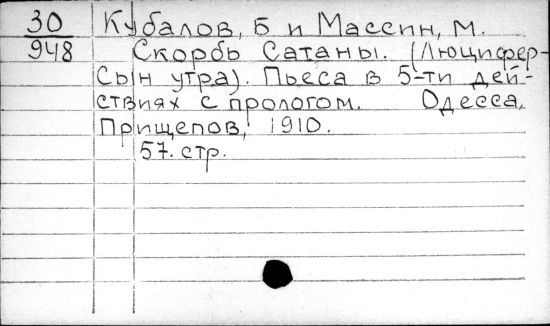 30 Кубалов, Б и Массин, М.
948 Скорбь Сатаны. (Люцифер-
Сын утра). Пьеса в 5-ти дей-
ствиях с прологом. Одесса,
Прищепов, 1910.
57. стр.